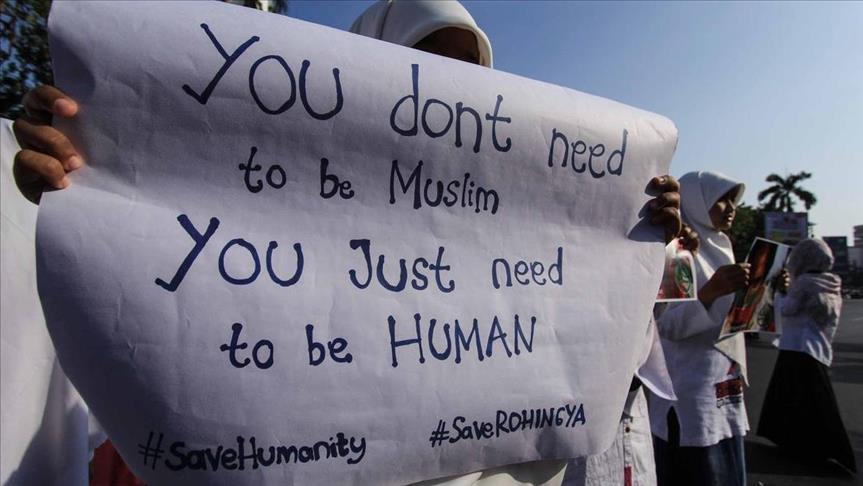 YOU dont need
to be Muslim
YOU Just need
to be HUMAN
#SaveHumanity #SaveROHINGYA